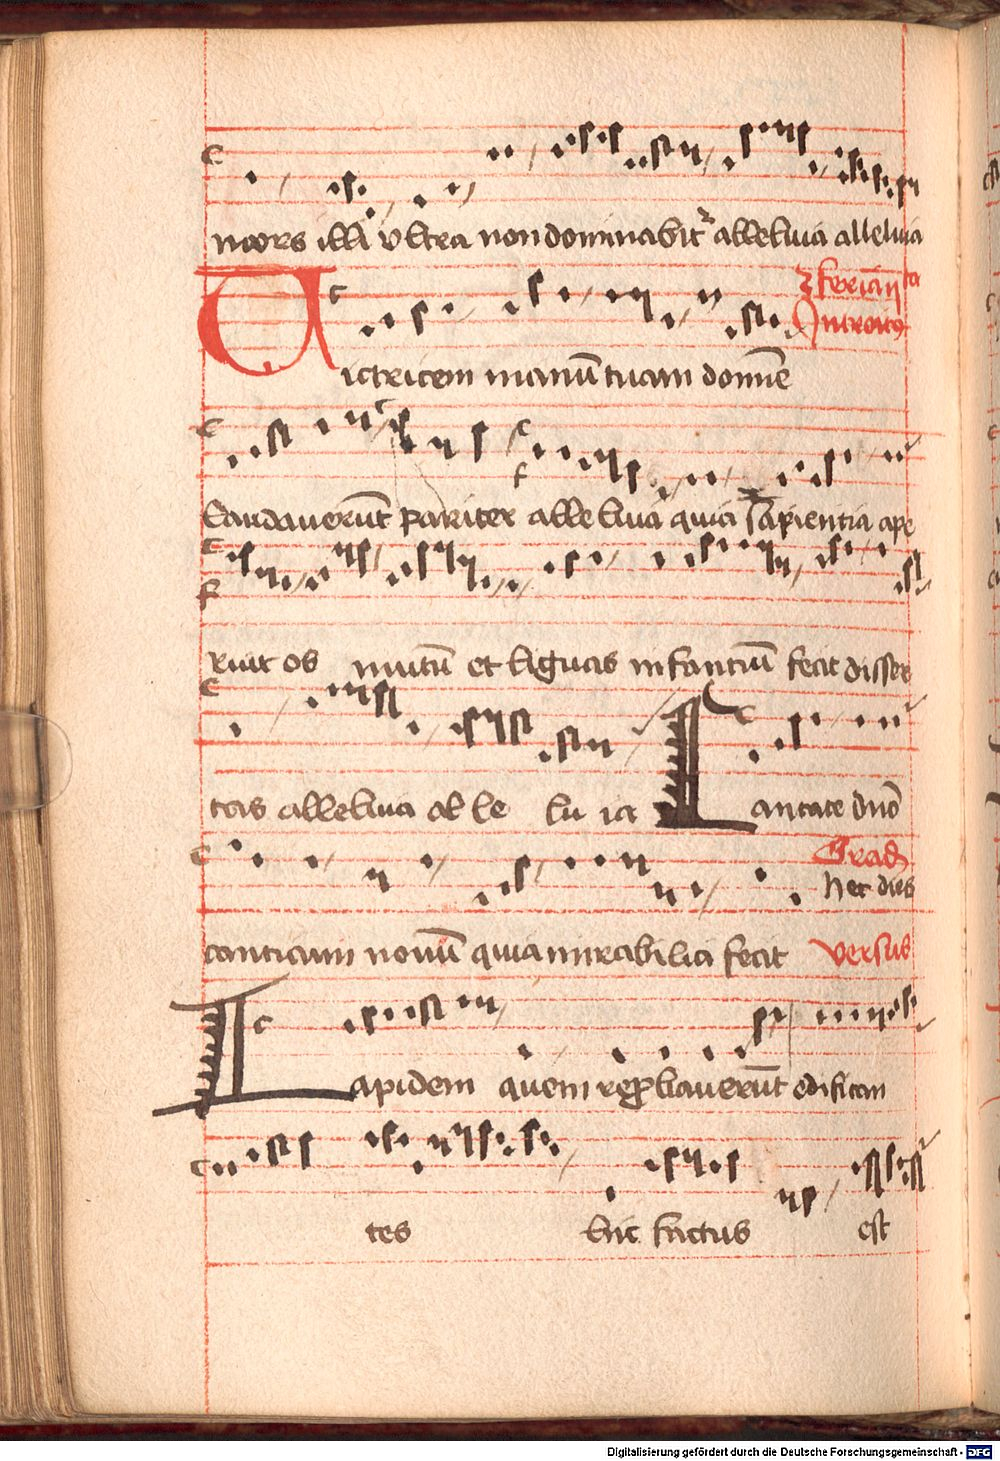 mors illi vltra non dominabit᷑ alleluia alleluia
feria
Introit9
Victricem manū tuam domine
Laudauerūt pariter alleluia quia sapientia ape
ruit os mutū et liguas infantiū fecit disser
tas alleluia al le lu ia Cantate dno
Grad
hec dies
canticum nouū quia mirabilia fecit versus
Lapidem quem reprobauerūt edifican
tes hic factus est
Digitalisierung gefördert durch die Deutsche Forschungsgemeinschaft - DFG